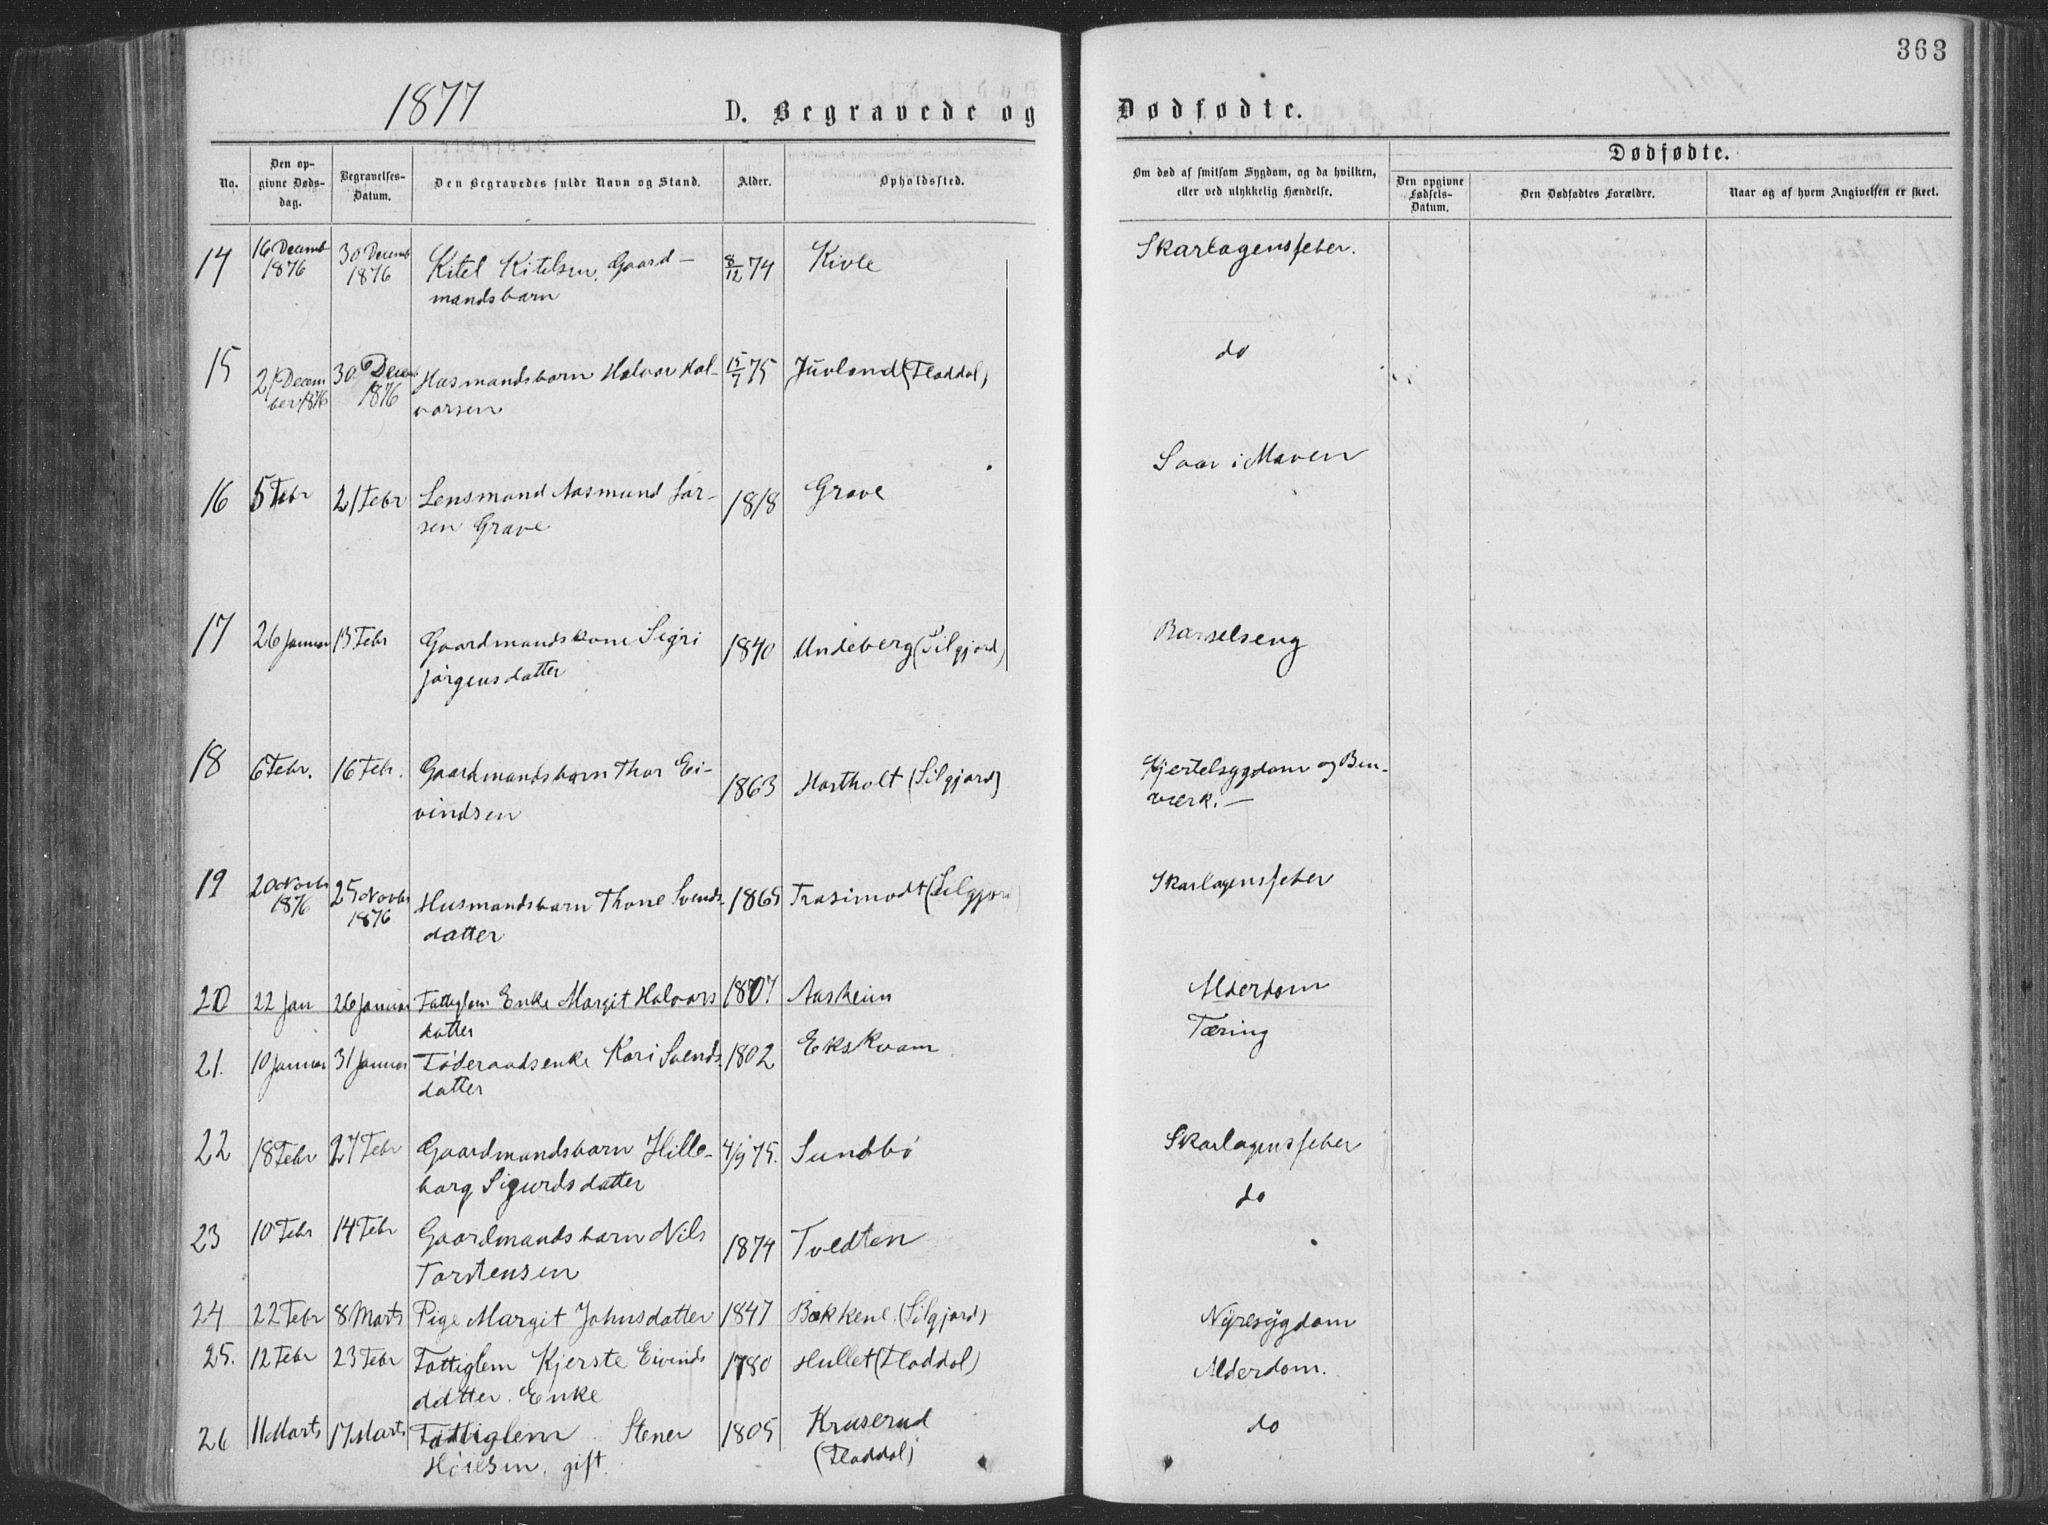 363
1877
D. Begravede og Dødfødte.
No. Den opgivne Dødsdag. Begravelses-Datum. Den Begravedes fulde Navn og Stand. Alder. Opholdssted. Om død af smitsom Sygdom, og da hvilken, eller ved ulykkelig Hændelse. Dødfødte. Den opgivne Fødsels-Datum. Den Dødfødtes Forældre. Naar og af hvem Angivelsen er skeet.
14 16 Decemb 30 Decemb Kitel Kitelsen, Gaard- 8/12 74 Kivle Skarlagensfeber.
1876 1876 mandsbarn
15 21 Decem 30 Decem Husmandsbarn Halvor Hal- 15/7 75 Juvland (Fladdal) do
ber 1876 1876 vorsen
16 5 Febr 21 Febr Lensmand Aasmund Lar- 1818 Grave Saar i Maven
sen Grave
17 26 Januar 13 Febr Gaardmandskone Sigri 1840 Undeberg (Silgjord) Barselseng
Jørgensdatter
18 6 Febr. 16 Febr. Gaardmandsbarn Thor Ei- 1863 Hartholt (Silgjord) Kjertelsygdom og Ben-
vindsen værk. —
19 20 Novbr 25 Novbr Husmandsbarn Thone Svends- 1865 Trasimodt (Silgjord) Skarlagensfeber
1876 1876 datter
20 22 Jan 26 Januar Fattiglem Enke Margit Halvors 1807 Aasheim Alderdom
datter
21. 10 Januar 31 Januar Føderaadsenke Kari Svends- 1802 Ekskvam Tæring
datter
22 18 Febr 27 Febr Gaardmandsbarn Hille- 4/9 75. Sundbø Skarlagensfeber
borg Sigurdsdatter
23 10 Febr 14 Febr Gaardmandsbarn Nils 1874 Tvedten do
Torstensen
24 22 Febr 8. Marts Pige Margit Johnsdatter 1847 Bækkene. (Silgjord) Nyresygdom
25. 12 Febr 23 Febr Fattiglem Kjerste Eivinds 1780 Hullet (Fladdal) Alderdom.
datter. Enke
26 11 Marts 17 Marts Fattiglem Stener 1805 Kruserud do
gift. (Fladdal)